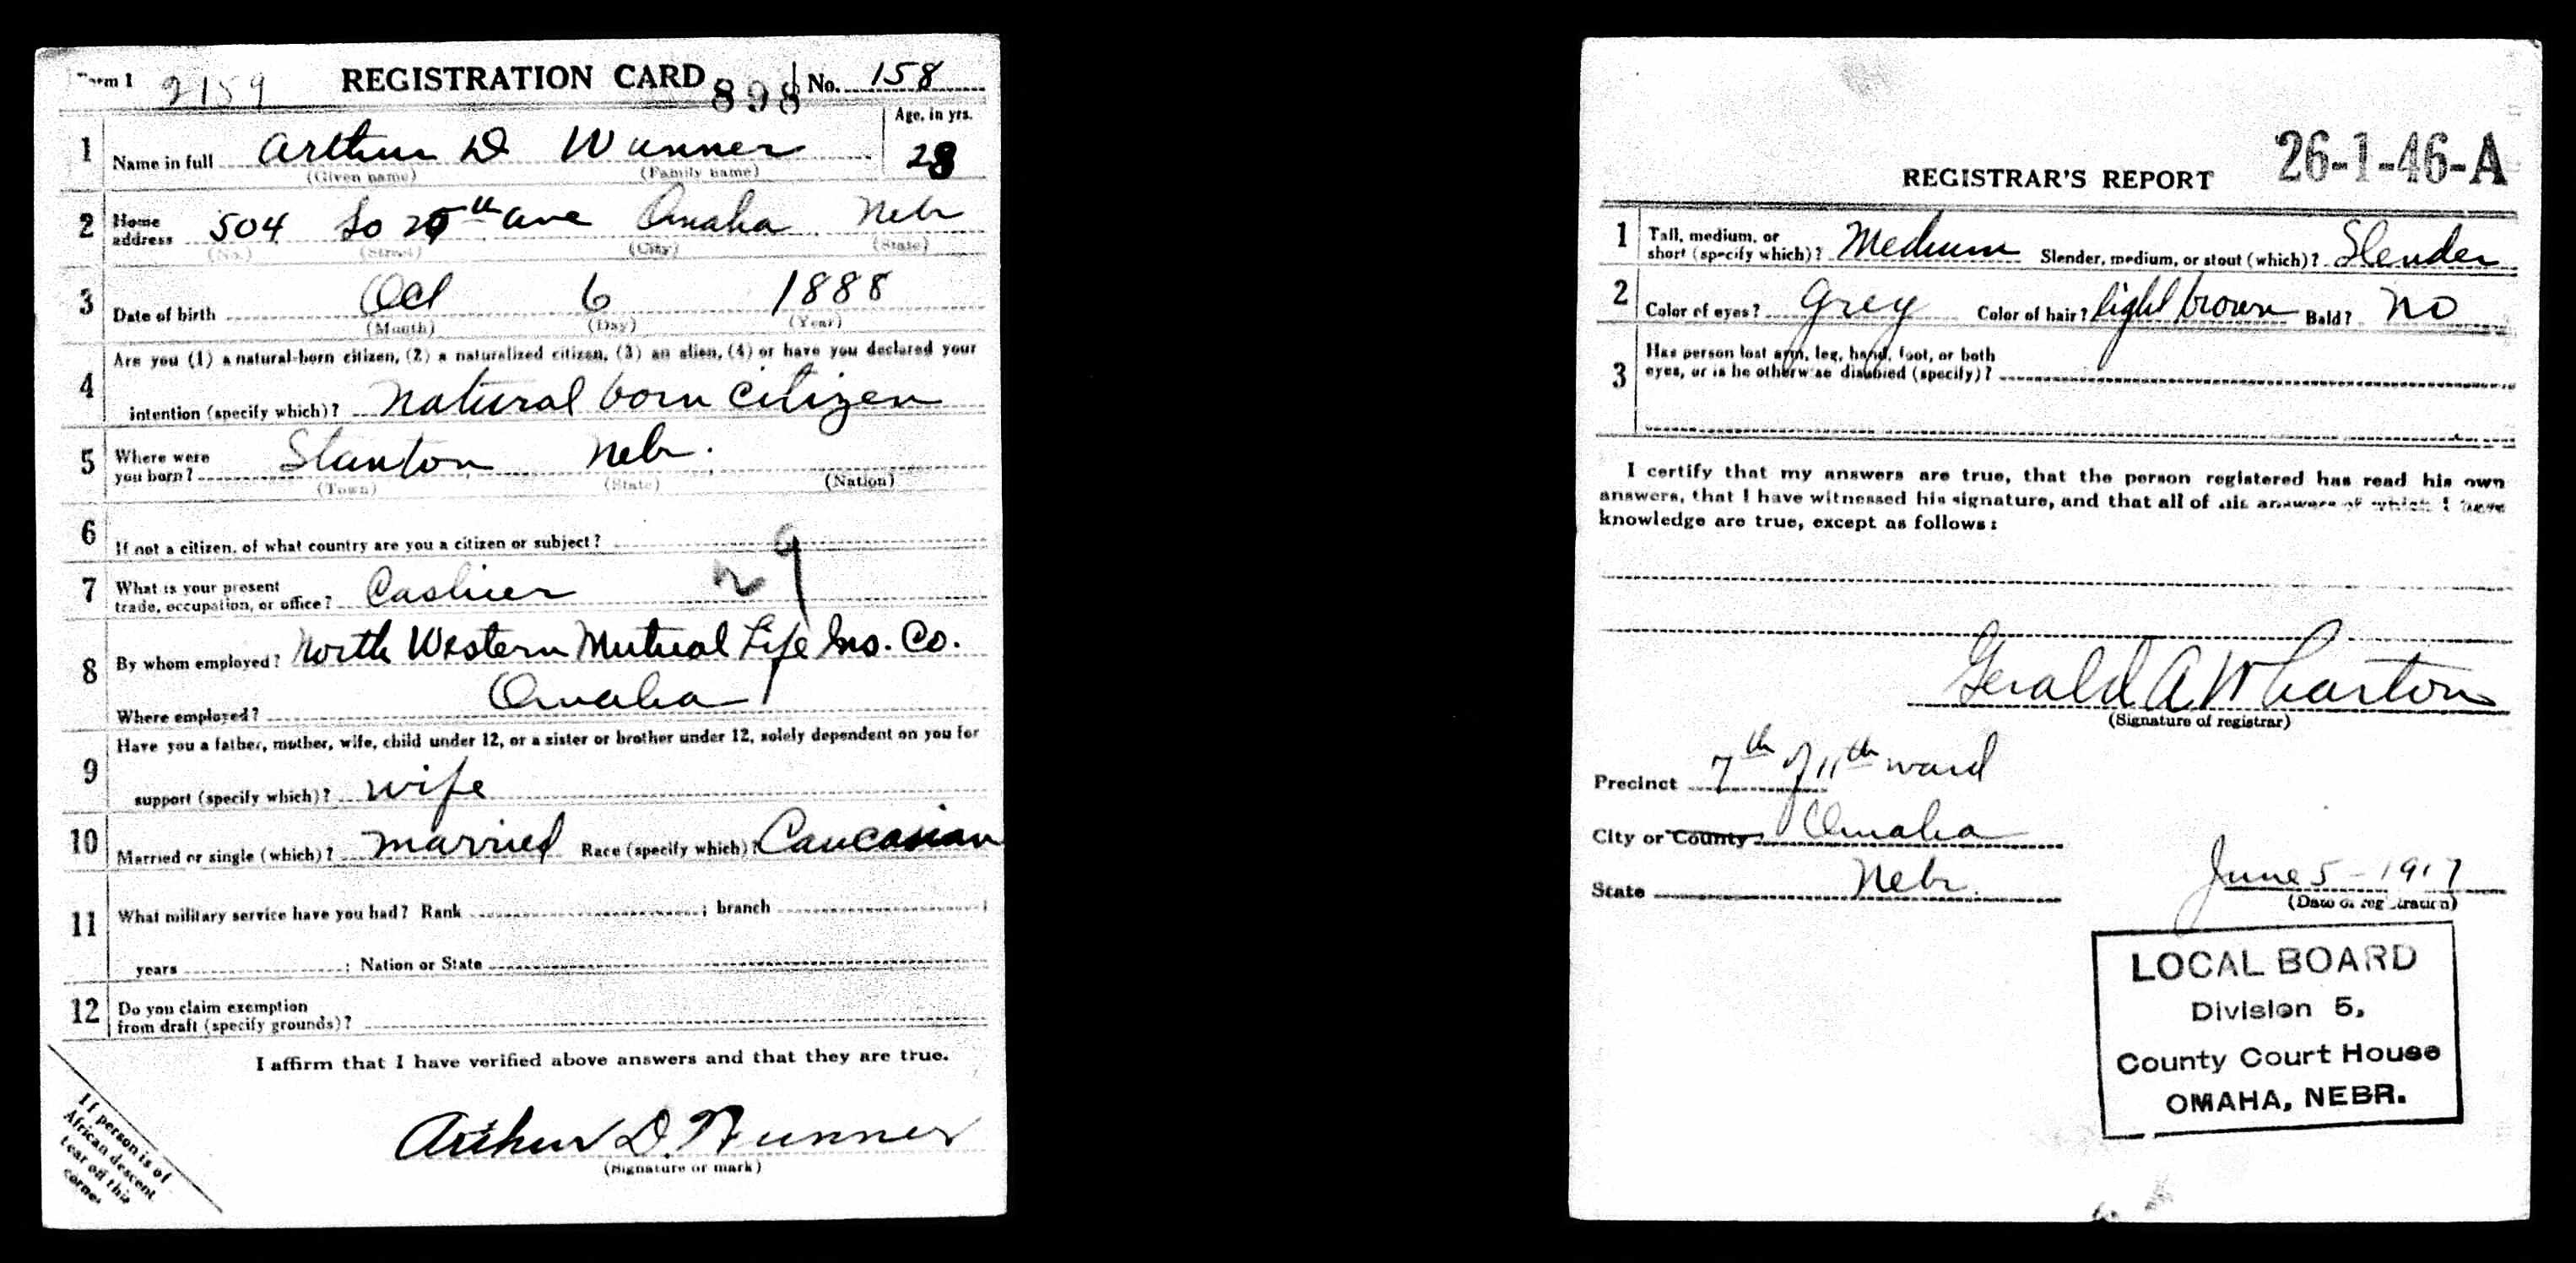 Form 1 2159 REGISTRATION CARD 898 No. 158
Age, in yrs.
1 Name in full Arthur D Wunner 28
(Given name) (Family name)
2 Home address 504 So th ave Omaha Nebr
(No.) (Street) (City) (State)
3 Date of birth Oct 6 1888
(Month) (Day) (Year)
Are you (1) a natural-born citizen, (2) a naturalized citizen, (3) an alien, (4) or have you declared your
4 intention (specify which)? natural born citizen
5 Where were you born? Stanton Nebr.
(Town) (State) (Nation)
6 If not a citizen, of what country are you a citizen or subject?
29
7 What is your present trade, occupation, or office? Cashier
8 By whom employed? North Western Mutual Life Ins. Co.
Where employed? Omaha
Have you a father, mother, wife, child under 12, or a sister or brother under 12, solely dependent on you for
9 support (specify which)? wife
10 Married or single (which)? married Race (specify which)? Caucasian
11 What military service have you had? Rank ; branch ;
years ; Nation or State
12 Do you claim exemption
from draft (specify grounds)?
I affirm that I have verified above answers and that they are true.
Arthur D. Wunner
(Signature or mark)
If person is of
African descent
tear off this
corner
26-1-46-A
REGISTRAR'S REPORT
1 Tall, medium, or short (specify which)? Medium Slender, medium, or stout (which)? Slender
2 Color of eyes? Grey Color of hair? light brown Bald? No
3 Has person lost arm, leg, hand, foot, or both
eyes, or is he otherwise disabled (specify)?
I certify that my answers are true, that the person registered has read his own
answers, that I have witnessed his signature, and that all of his answers of which I have
knowledge are true, except as follows:
Gerald A Wharton
(Signature of registrar)
Precinct 7th of 11th ward
City or County Omaha
State Nebr. June 5 - 1917
(Date of registration)
LOCAL BOARD
Division 5,
County Court House
OMAHA, NEBR.